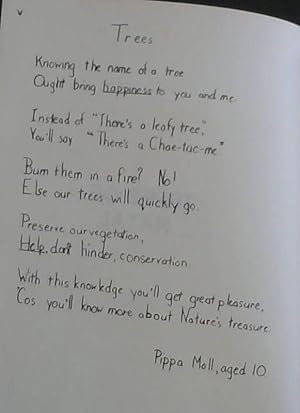 Trees
Knowing the name of a tree
Ought bring happiness to you and me.
Instead of "There's a leafy tree,"
You'll say "There's a Chae-tac-me"
Burn them in a fire? No!
Else our trees will quickly go.
Preserve our vegetation,
Help, don't hinder, conservation.
With this knowledge you'll get great pleasure,
'Cos you'll know more about Nature's treasure.
Pippa Moll, aged 10